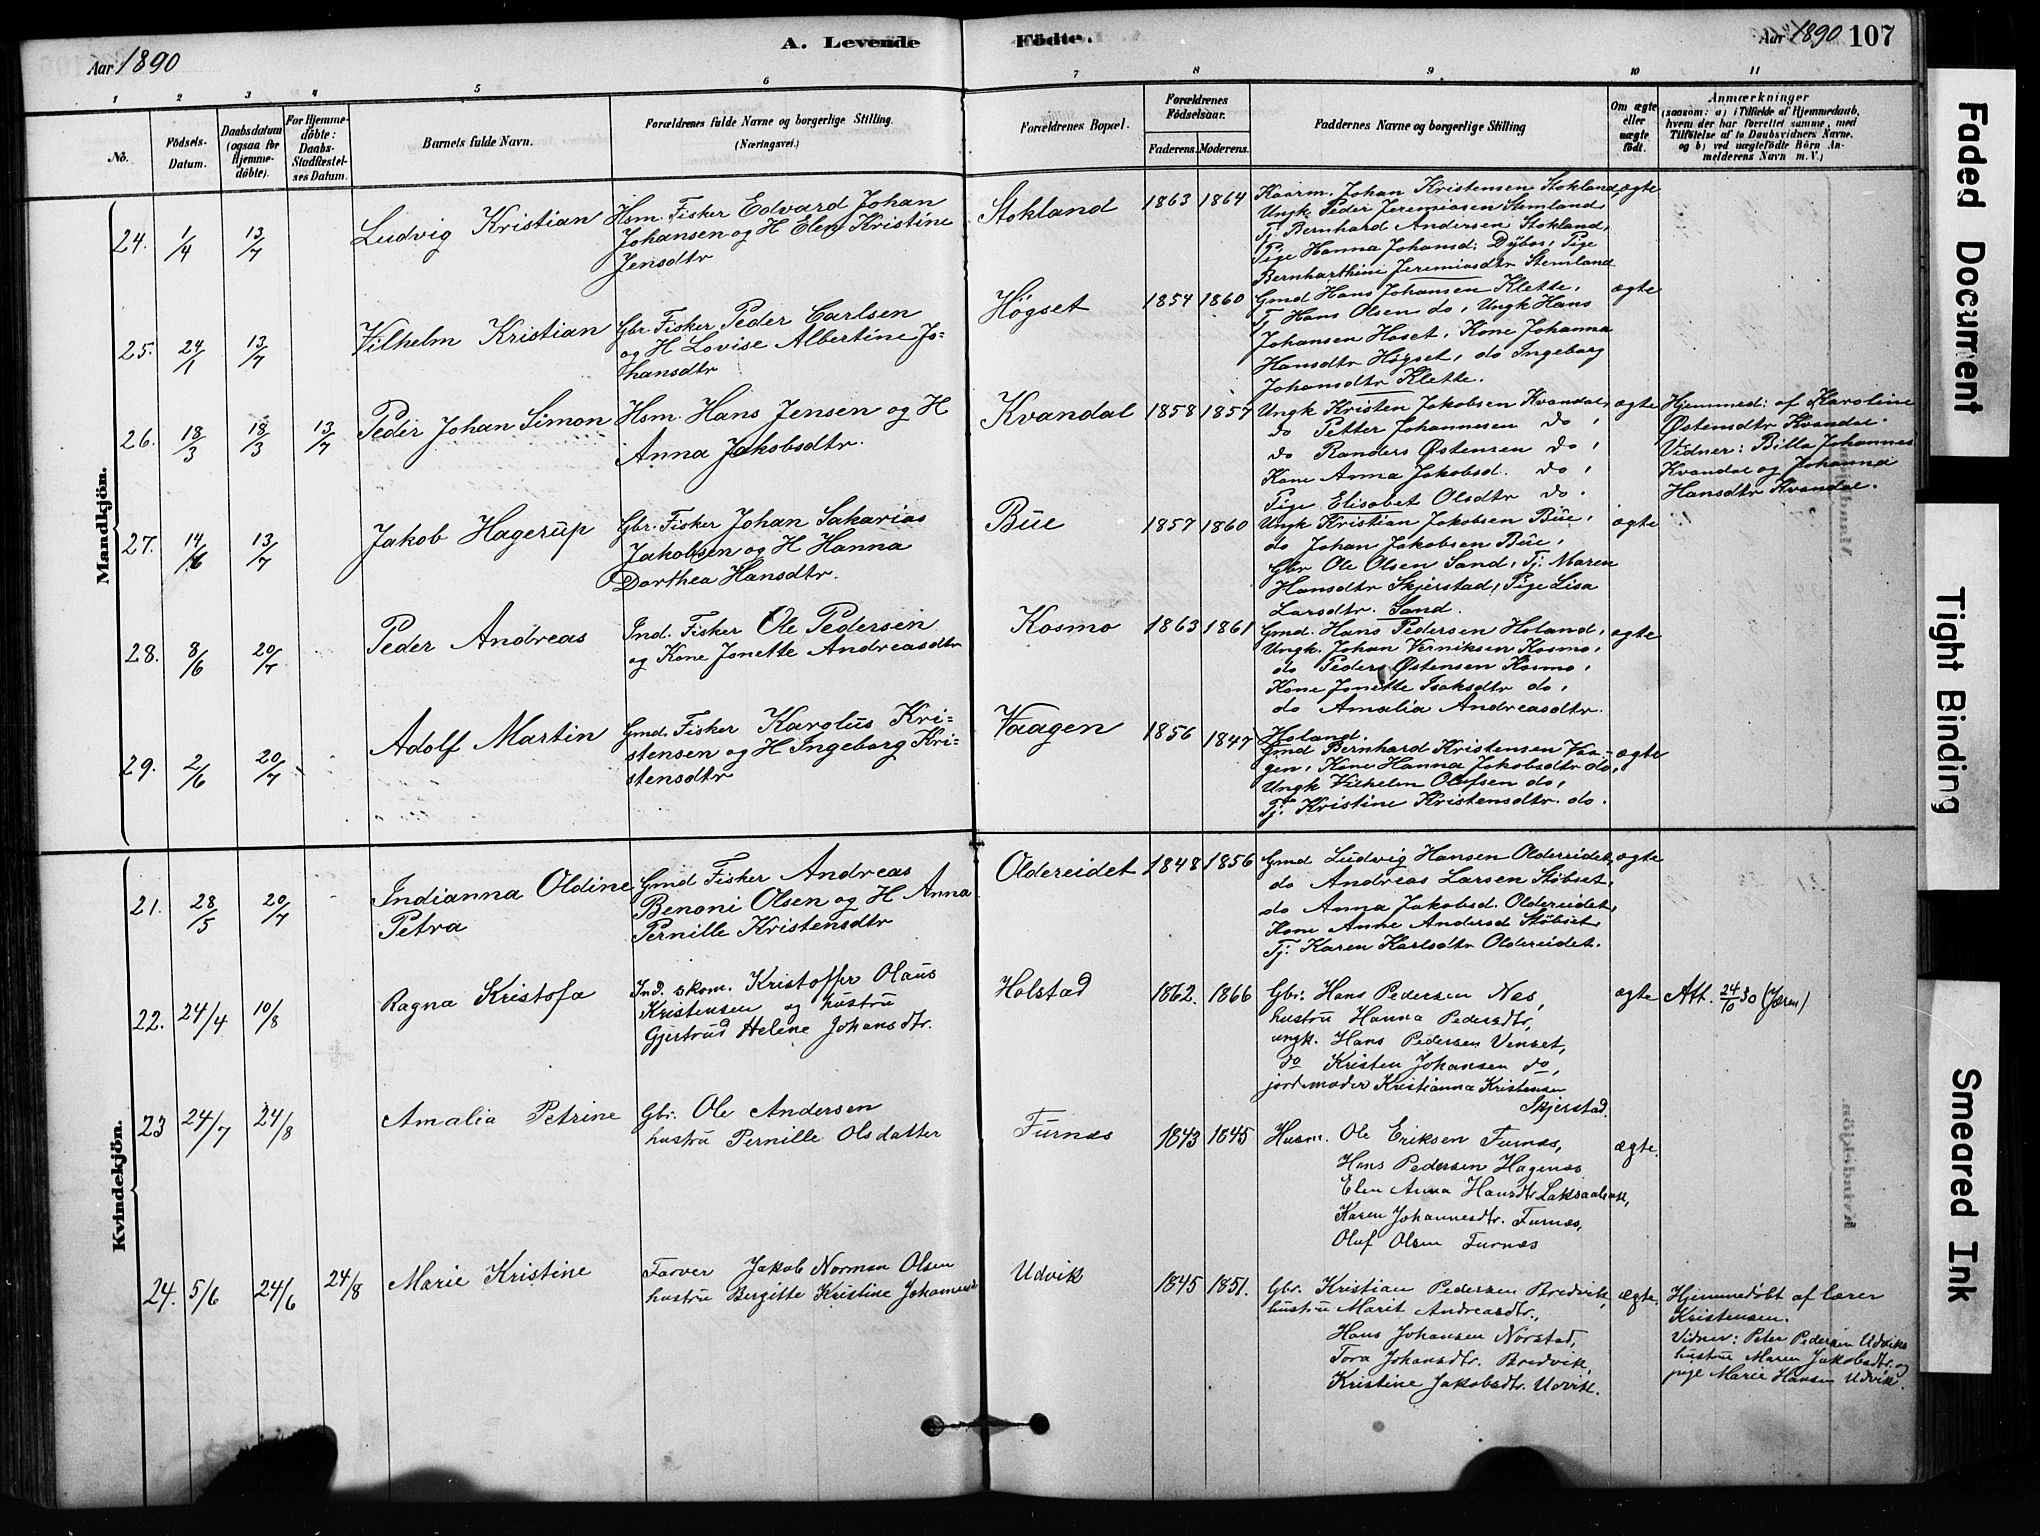 Aar 1890
A. Levende
Födte.
Aar 1890 107
1 2 3 4 5 6 7 8 9 10 11
No.
Födsels-
Datum.
Daabsdatum
(ogsaa for
Hjemme-
döbte).
For Hjemme-
döbte:
Daabs-
Stadfæstel-
ses Datum.
Barnets fulde Navn.
Forældrenes fulde Navne og borgerlige Stilling.
(Næringsvei.)
Forældrenes Bopæl.
Forældrenes
Födselsaar.
Faderens. Moderens.
Faddernes Navne og borgerlige Stilling
Om ægte
eller
uægte
födt.
Anmærkninger
(saasom: a) i Tilfælde af Hjemmedaab,
hvem der har forrettet samme, med
Tilföielse af to Daabsvidners Navne.
og b) ved uægtefödte Börn An-
melderens Navn m. V.)
Mandkjön.
24. 1/4 13/7
Ludvig Kristian
Hsm. Fisker Edvard Johan
Johansen og H Elen Kristine
Jensdtr
Stokland 1863 1864
Kaarm. Johan Kristensen Stokland,
Ungk. Peder Jeremiasen Stemland,
Tj. Bernhard Andersen Stokland,
Pige Hanna Johansd. Dybos, Pige
Bernharthine Jeremiasdtr Stemland
ægte
25. 24/1 13/7
Vilhelm Kristian
Gbr Fisker Peder Carlsen
og H Lovise Albertine Jo=
hansdtr
Högset 1854 1860
Gmd Hans Johansen Klette,
Tj Hans Olsen do, Ungk Hans
Johansen Hoset, Kone Johanna
Hansdtr Högset, do Ingeborg
Johansdtr Klette.
ægte
26. 18/3 18/3 13/7
Peder Johan Simon
Hsm. Hans Jensen og H
Anna Jakobsdtr.
Kvandal 1858 1857
Ungk Kristen Jakobsen Kvandal,
do Petter Johannesen do,
do Randers Østensen do,
Kone Anna Jakobsd. do,
Pige Elisabet Olsdtr do.
ægte
Hjemmed: af Karoline
Østensdtr Kvandal.
Vidner: Billa Johannes
Kvandal og Johanna
Hansdtr Kvandal.
27. 14/6 13/7
Jakob Hagerup
Gbr. Fisker Johan Sakarias
Jakobsen og H Hanna
Dorthea Hansdtr.
Bue 1857 1860
Ungk Kristian Jakobsen Bue,
do Johan Jakobsen Bue,
Gbr Ole Olsen Sand, Tj. Maren
Hansdtr Skjerstad, Pige Lisa
Larsdtr. Sand.
ægte
28. 8/6 20/7
Peder Andreas
Ind. Fisker Ole Pedersen
og Kone Jonette Andreasdtr
Kosmo 1863 1861
Gmd. Hans Pedersen Holand,
Ungk. Johan Verniksen Kosmo,
do Peder Østensen Kosmo,
Kone Jonette Isaksdtr do,
do Amalia Andreasdtr.
Holand.
ægte
29. 2/6 20/7
Adolf Martin
Gmd. Fisker Karolus Kri=
stensen og H Ingeborg Kri=
stensdtr
Vaagen 1856 1847
Gmd Bernhard Kristensen Vaa-
gen, Kone Hanna Jakobsdtr do,
Ungk Vilhelm Olufsen do,
Tj. Kristine Kristensdtr. do.
ægte
Kvindekjön.
21. 28/5 20/7
Indianna Oldine
Petra
Gmd Fisker Andreas
Benoni Olsen og H Anna
Pernille Kristensdtr
Oldereidet 1848 1856
Gmd Ludvig Hansen Oldereidet,
do Andreas Larsen Stöbset,
do Anna Jakobsd. Oldereidet,
Kone Anne Andersd Stöbset,
Tj. Karen Karlsdtr Oldereidet.
ægte
22. 24/4 10/8
Ragna Kristofa
Ind. skom. Kristoffer Olaus
Kristensen og hustru
Gjertrud Helene Johansdtr.
Holstad 1862. 1866
Gbr. Hans Pedersen Nes,
hustru Hanna Pedersdtr,
ungk. Hans Pedersen Venset,
do Kristen Johansen do,
jordemoder Kristianna Kristensen
Skjerstad.
ægte
Att. 24/10 30 (Jæren)
23 24/7 24/8
Amalia Petrine
Gbr. Ole Andersen
hustru Pernille Olsdatter
Furnes 1843 1845
Husm. Ole Eriksen Furnes,
Hans Pedersen Hagenes
Elen Anna Hansdtr
Karen Johannesdtr. Furnes,
Oluf Olsen Furnes
ægte.
24. 5/6 24/6 24/8
Marie Kristine
Farver Jakob Norman Olsen
hustru Bergitte Kristine Johannesd
Udvik 1845 1851.
Gbr. Kristian Pedersen Bredvik,
hustru Marit Andreasdtr.,
Hans Johansen Nörstad,
Tora Johansdtr. Bredvik,
Kristine Jakobsdtr. Udvik.
ægte.
Hjemmedöbt af lærer
Kristensen.
Vidner: Peter Pedersen Udvik,
hustru Maren Jakobsdtr. og
pige Marie Hansen Udvik.
Faded Document
Tight Binding
Smeared Ink